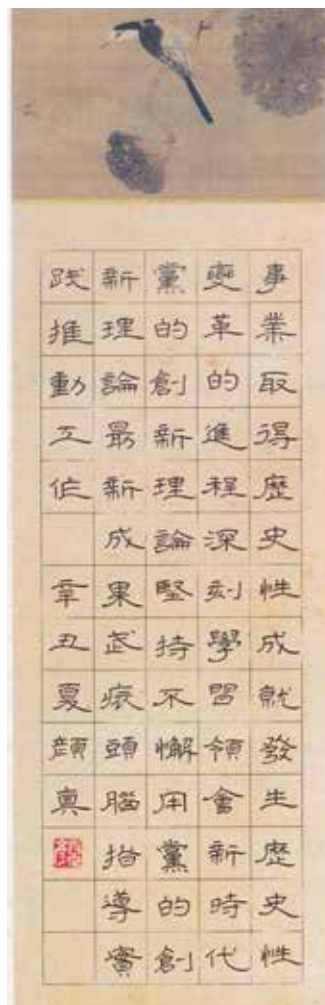 事業取得歷史性成就發生歷史性
變革的進程深刻學習領會新時代
黨的創新理論堅持不懈用黨的創
新理論最新成果武裝頭腦指導實
践推動工作 辛丑夏顏真